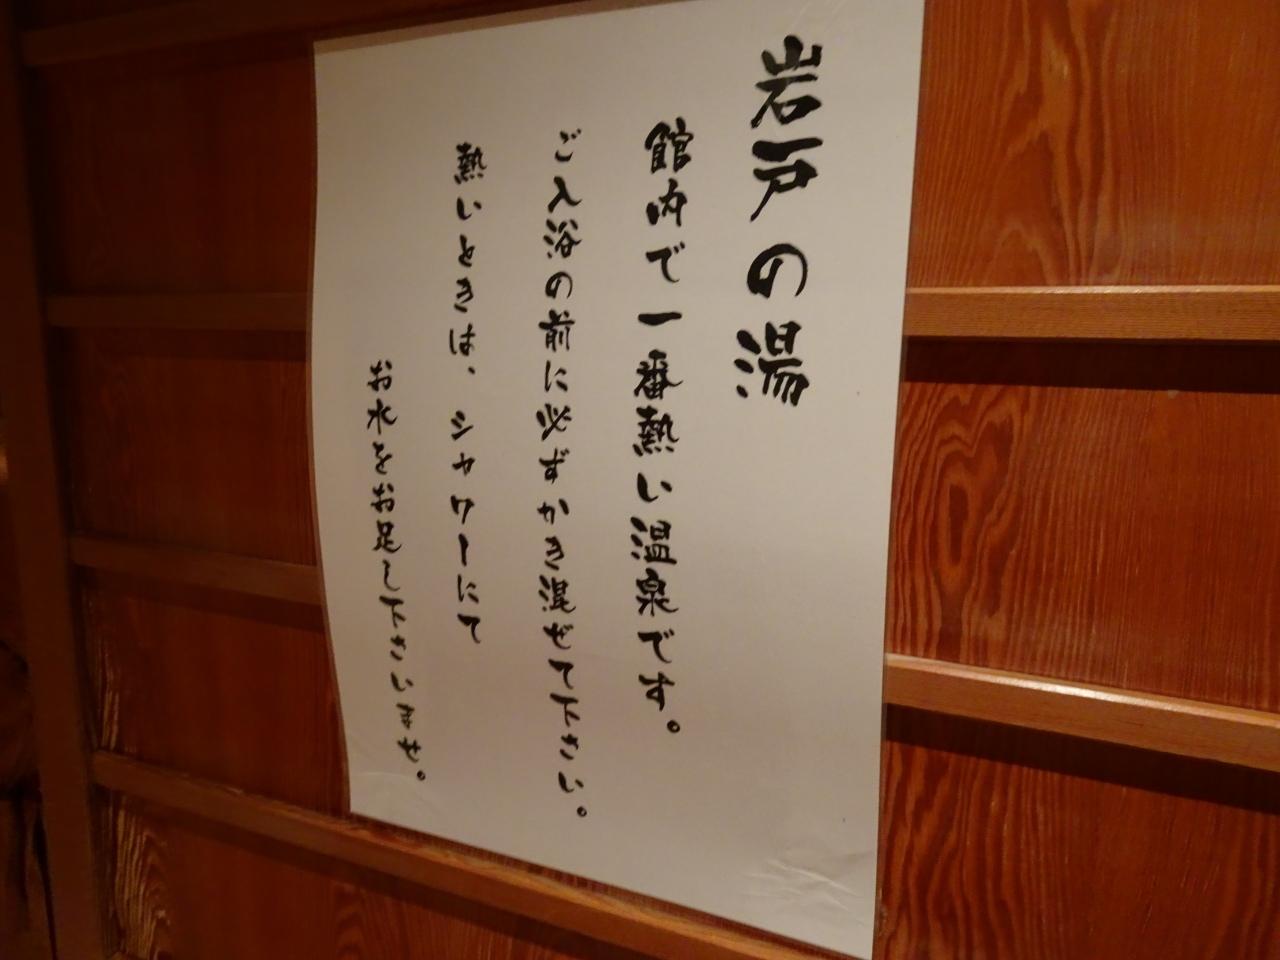 岩戸の湯
館内で一番熱い温泉です。
ご入浴の前に必ずかき混ぜて下さい。
熱いときは、シャワーにて
お水をお足し下さいませ。